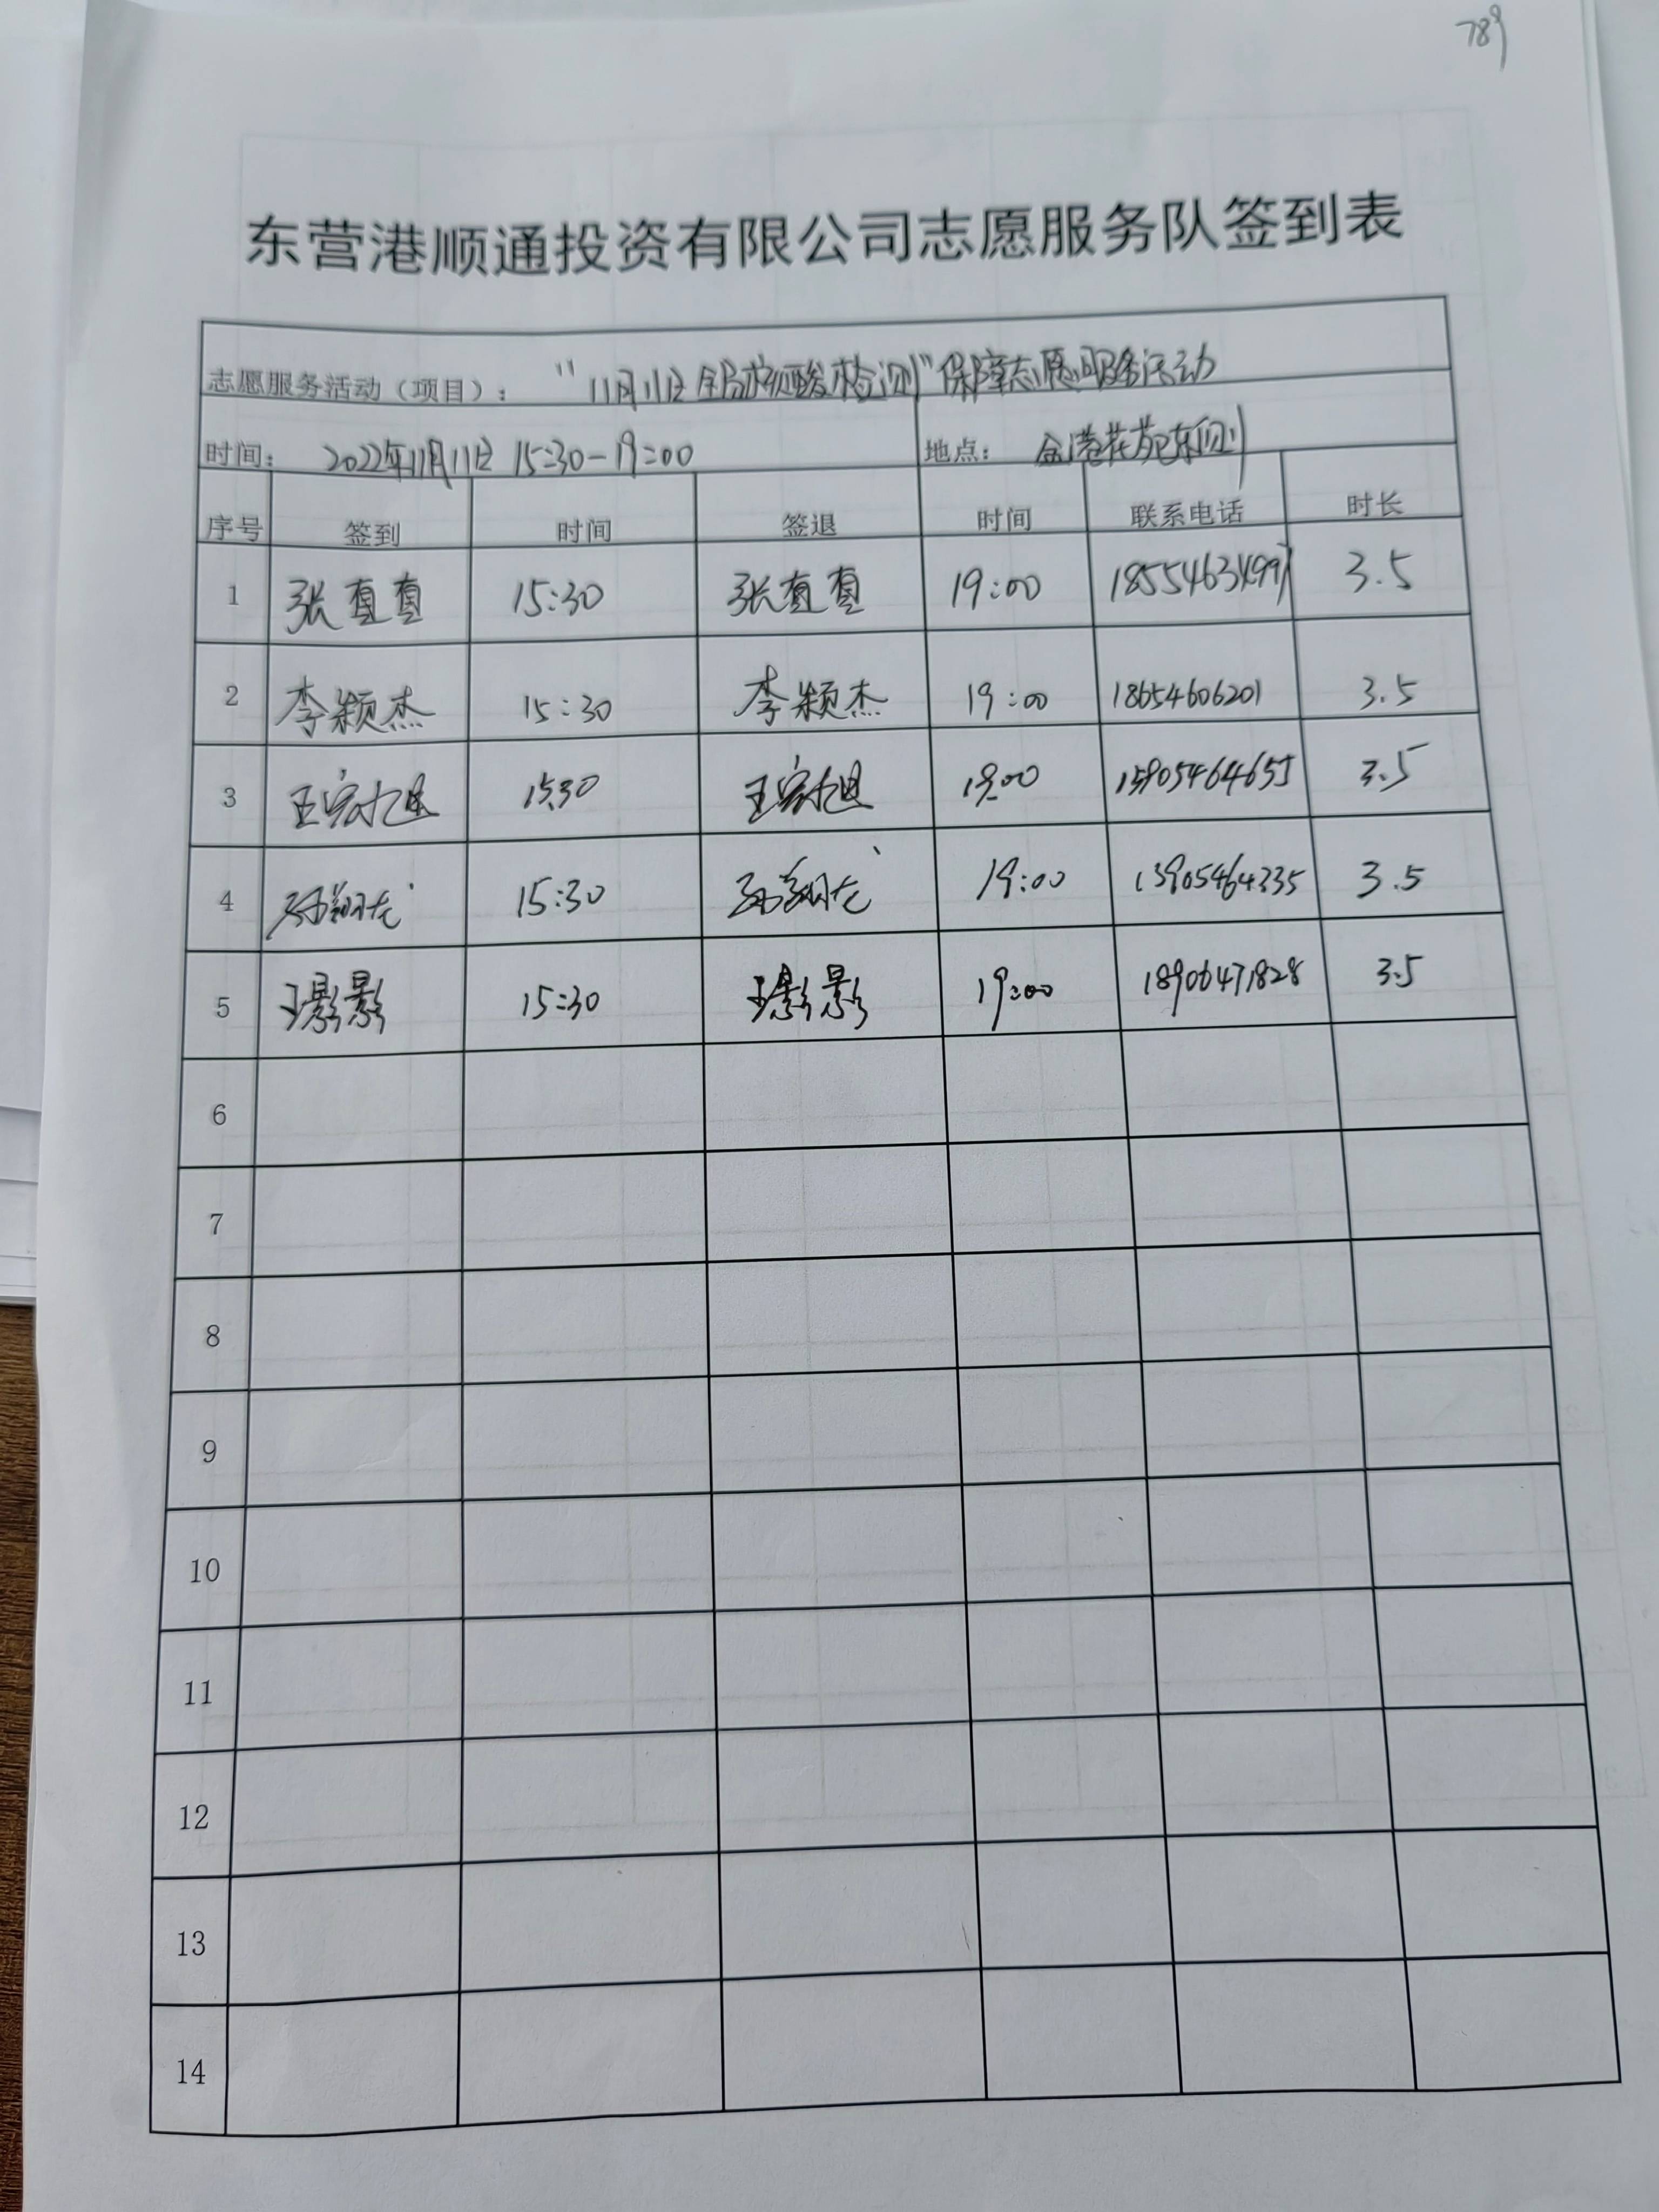 789
东营港顺通投资有限公司志愿服务队签到表
志愿服务活动（项目）： "11月11日全员核酸检测"保障志愿服务活动
时间： 2022年11月11日 15:30-19:00 地点： 金港花苑东侧
序号 签到 时间 签退 时间 联系电话 时长
1 张真真 15:30 张真真 19:00 3.5
2 李颖杰 15:30 李颖杰 19:00 18654606201 3.5
3 15:30 19:00 15905464655 3.5
4 孙翔龙 15:30 孙翔龙 19:00 13905464335 3.5
5 王影影 15:30 王影影 19:00 18906471828 3.5
6
7
8
9
10
11
12
13
14